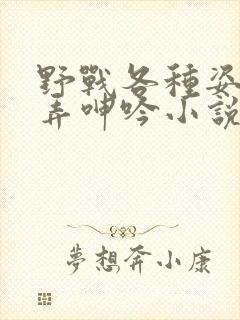 野戰各種姿
弄呻吟小說
夢想奔小康